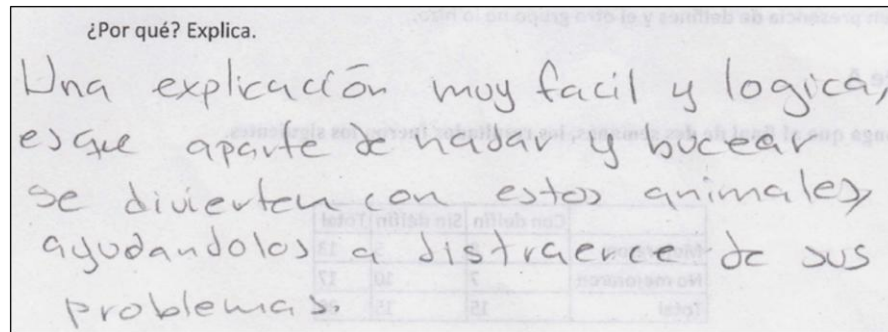 ¿Por qué? Explica.
Una explicación muy facil y logica,
es que aparte de nadar y bucear
se divierten con estos animales,
ayudandolos a distraerse de sus
problemas.